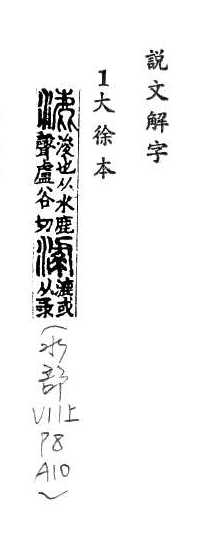 說文解字
1大徐本
漉浚也从水鹿聲盧谷切淥漉或从录
(水部
V11上
P8
A10
)